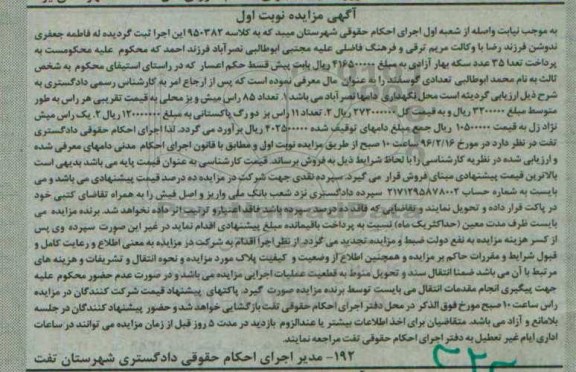 آگهی مزایده نوبت اول
به موجب نیابت واصله از شعبه اول اجرای احکام حقوقی شهرستان میبد که به کلاسه ۹۵۰۳۸۲ این اجرا ثبت گردیده له فاطمه جعفری
ندوشن فرزند رضا با وکالت مریم ترقی و فرهنگ فاضلی علیه مجتبی ابوطالبی نصرآباد فرزند احمد که محکوم علیه محکومست به
پرداخت تعدا ۳۵ عدد سکه بهار آزادی به مبلغ ۴۱۶۵۰۰۰۰۰ ریال بابت پیش قسط حکم اعسار که در راستای استیفای محکوم به شخص
ثالث به نام محمد ابوطالبی تعدادی گوسفند را به عنوان مال معرفی نموده است که پس از ارجاع امر به کارشناس رسمی دادگستری به
شرح ذیل ارزیابی گردیده است محل نگهداری دامها نصرآباد می باشد ۱. تعداد ۸۵ راس میش و بز محلی به قیمت تقریبی هر راس به طور
متوسط مبلغ ۳۲۰۰۰۰۰ ریال و به قیمت کل ۲۷۲۰۰۰۰۰۰ ریال ۲. تعداد ۱۱ راس بز دورگ پاکستانی به مبلغ ۱۲۰۰۰۰۰۰۰ ریال ۳. یک راس میش
نژاد زل به قیمت ۱۰۵۰۰۰۰۰ ریال جمع مبلغ دامهای توقیف شده ۴۰۲۵۰۰۰۰۰ ریال برآورد می گردد. لذا اجرای احکام حقوقی دادگستری
تفت در نظر دارد در مورخ ۹۶/۲/۱۶ ساعت ۱۰ صبح از طریق مزایده نوبت اول و مطابق با قانون اجرای احکام مدنی دامهای معرفی شده
و ارزیابی شده در نظریه کارشناسی را با لحاظ شرایط ذیل به فروش برساند. قیمت کارشناسی به عنوان قیمت پایه می باشد بدیهی است
بالاترین قیمت پیشنهادی مبنای فروش قرار می گیرد. سپرده نقدی جهت شرکت در مزایده ده درصد قیمت پیشنهادی می باشد و می
بایست به شماره حساب ۲۱۷۱۲۹۵۸۷۸۰۰۲ سپرده دادگستری نزد شعب بانک ملی واریز و اصل فیش را به همراه تقاضای کتبی خود
در پاکت قرار داده و تحویل نمایند و تقاضایی که فاقد ده درصد سپرده باشد فاقد اعتبار و ترتیب اثر داده نخواهد شد. برنده مزایده می
بایست ظرف مدت معین (حداکثر یک ماه) نسبت به پرداخت باقیمانده مبلغ پیشنهادی اقدام نماید در غیر این صورت سپرده وی پس
از کسر هزینه مزایده به نفع دولت ضبط و مزایده تجدید می گردد. از نظر اجرا اقدام به شرکت در مزایده به معنی اطلاع و رعایت کامل و
قبول شرایط و مقررات حاکم بر مزایده و همچنین اطلاع از وضعیت و کیفیت پلاک مورد مزایده و نحوه انتقال و تشریفات و هزینه های
مرتبط با آن می باشد ضمنا انتقال سند و تحویل منوط به قطعیت عملیات اجرایی مزایده می باشد و در صورت عدم حضور محکوم علیه
جهت پیگیری انجام مقدمات انتقال می بایست توسط برنده مزایده صورت گیرد. پاکتهای پیشنهاد قیمت شرکت کنندگان در مزایده
راس ساعت ۱۰ صبح مورخ فوق الذکر در محل دفتر اجرای احکام حقوقی تفت بازگشایی خواهد شد و حضور پیشنهاد کنندگان در جلسه
بلامانع و آزاد می باشد. متقاضیان برای اخذ اطلاعات بیشتر یا عندالزوم بازدید در مدت ۵ روز قبل از زمان مزایده می توانند در ساعات
اداری ایام غیر تعطیل به دفتر اجرای احکام حقوقی تفت مراجعه نمایند.
۱۹۲- مدیر اجرای احکام حقوقی دادگستری شهرستان تفت